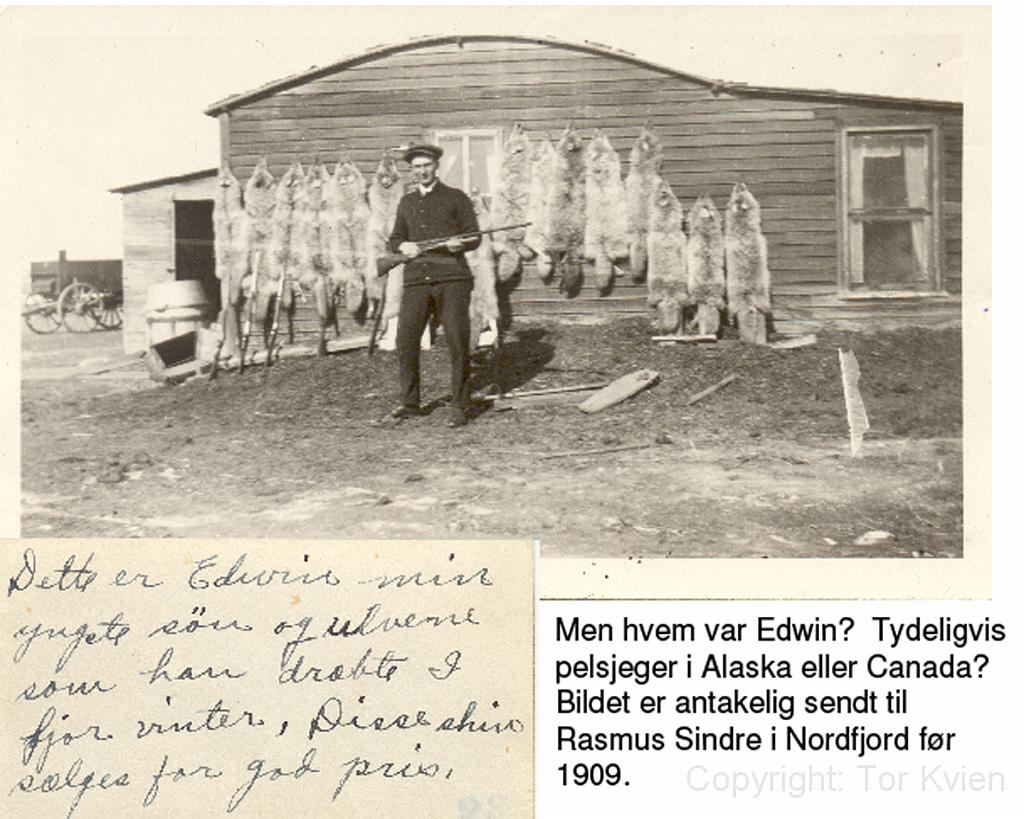 Dette er Edwin min
yngste sön og ulvene
som han dræbte I
fjor vinter, Disse skin
sælges for god pris.
Men hvem var Edwin? Tydeligvis
pelsjeger i Alaska eller Canada?
Bildet er antakelig sendt til
Rasmus Sindre i Nordfjord før
1909.
Copyright: Tor Kvien